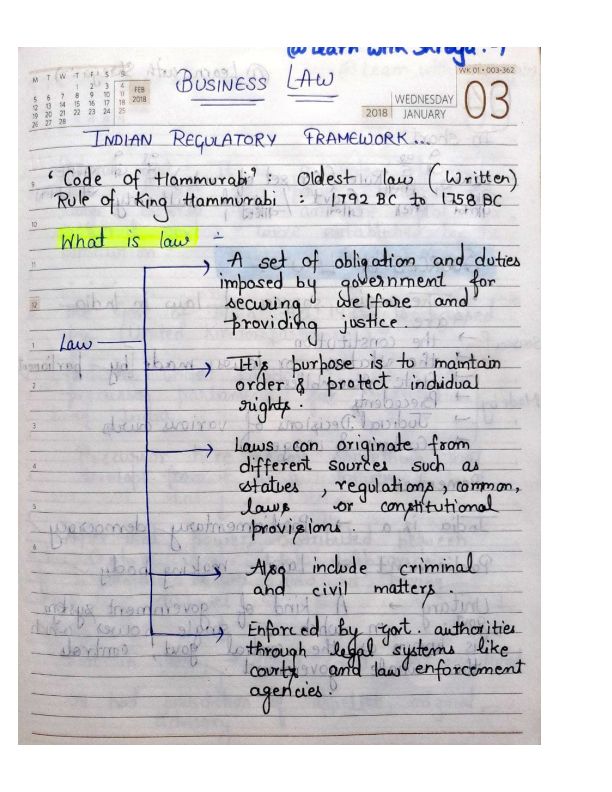 @Learn with Shreya :-)
M T W T F S S
1 2 3 4
5 6 7 8 9 10 11
12 13 14 15 16 17 18
19 20 21 22 23 24 25
26 27 28
FEB
2018
BUSINESS LAW
WK 01 • 003-362
WEDNESDAY
2018 JANUARY
03
INDIAN REGULATORY FRAMEWORK...
'Code of Hammurabi' : Oldest law (Written)
Rule of King Hammurabi : 1792 BC to 1758 BC
What is law :-
A set of obligation and duties
imposed by government for
securing welfare and
providing justice.
Law
It's purpose is to maintain
order & protect indiidual
rights.
Laws can originate from
different sources such as
statues, regulations, common,
laws or constitutional
provisions.
Also include criminal
and civil matters.
Enforced by govt. authorities
through legal systems like
courts and law enforcement
agencies.